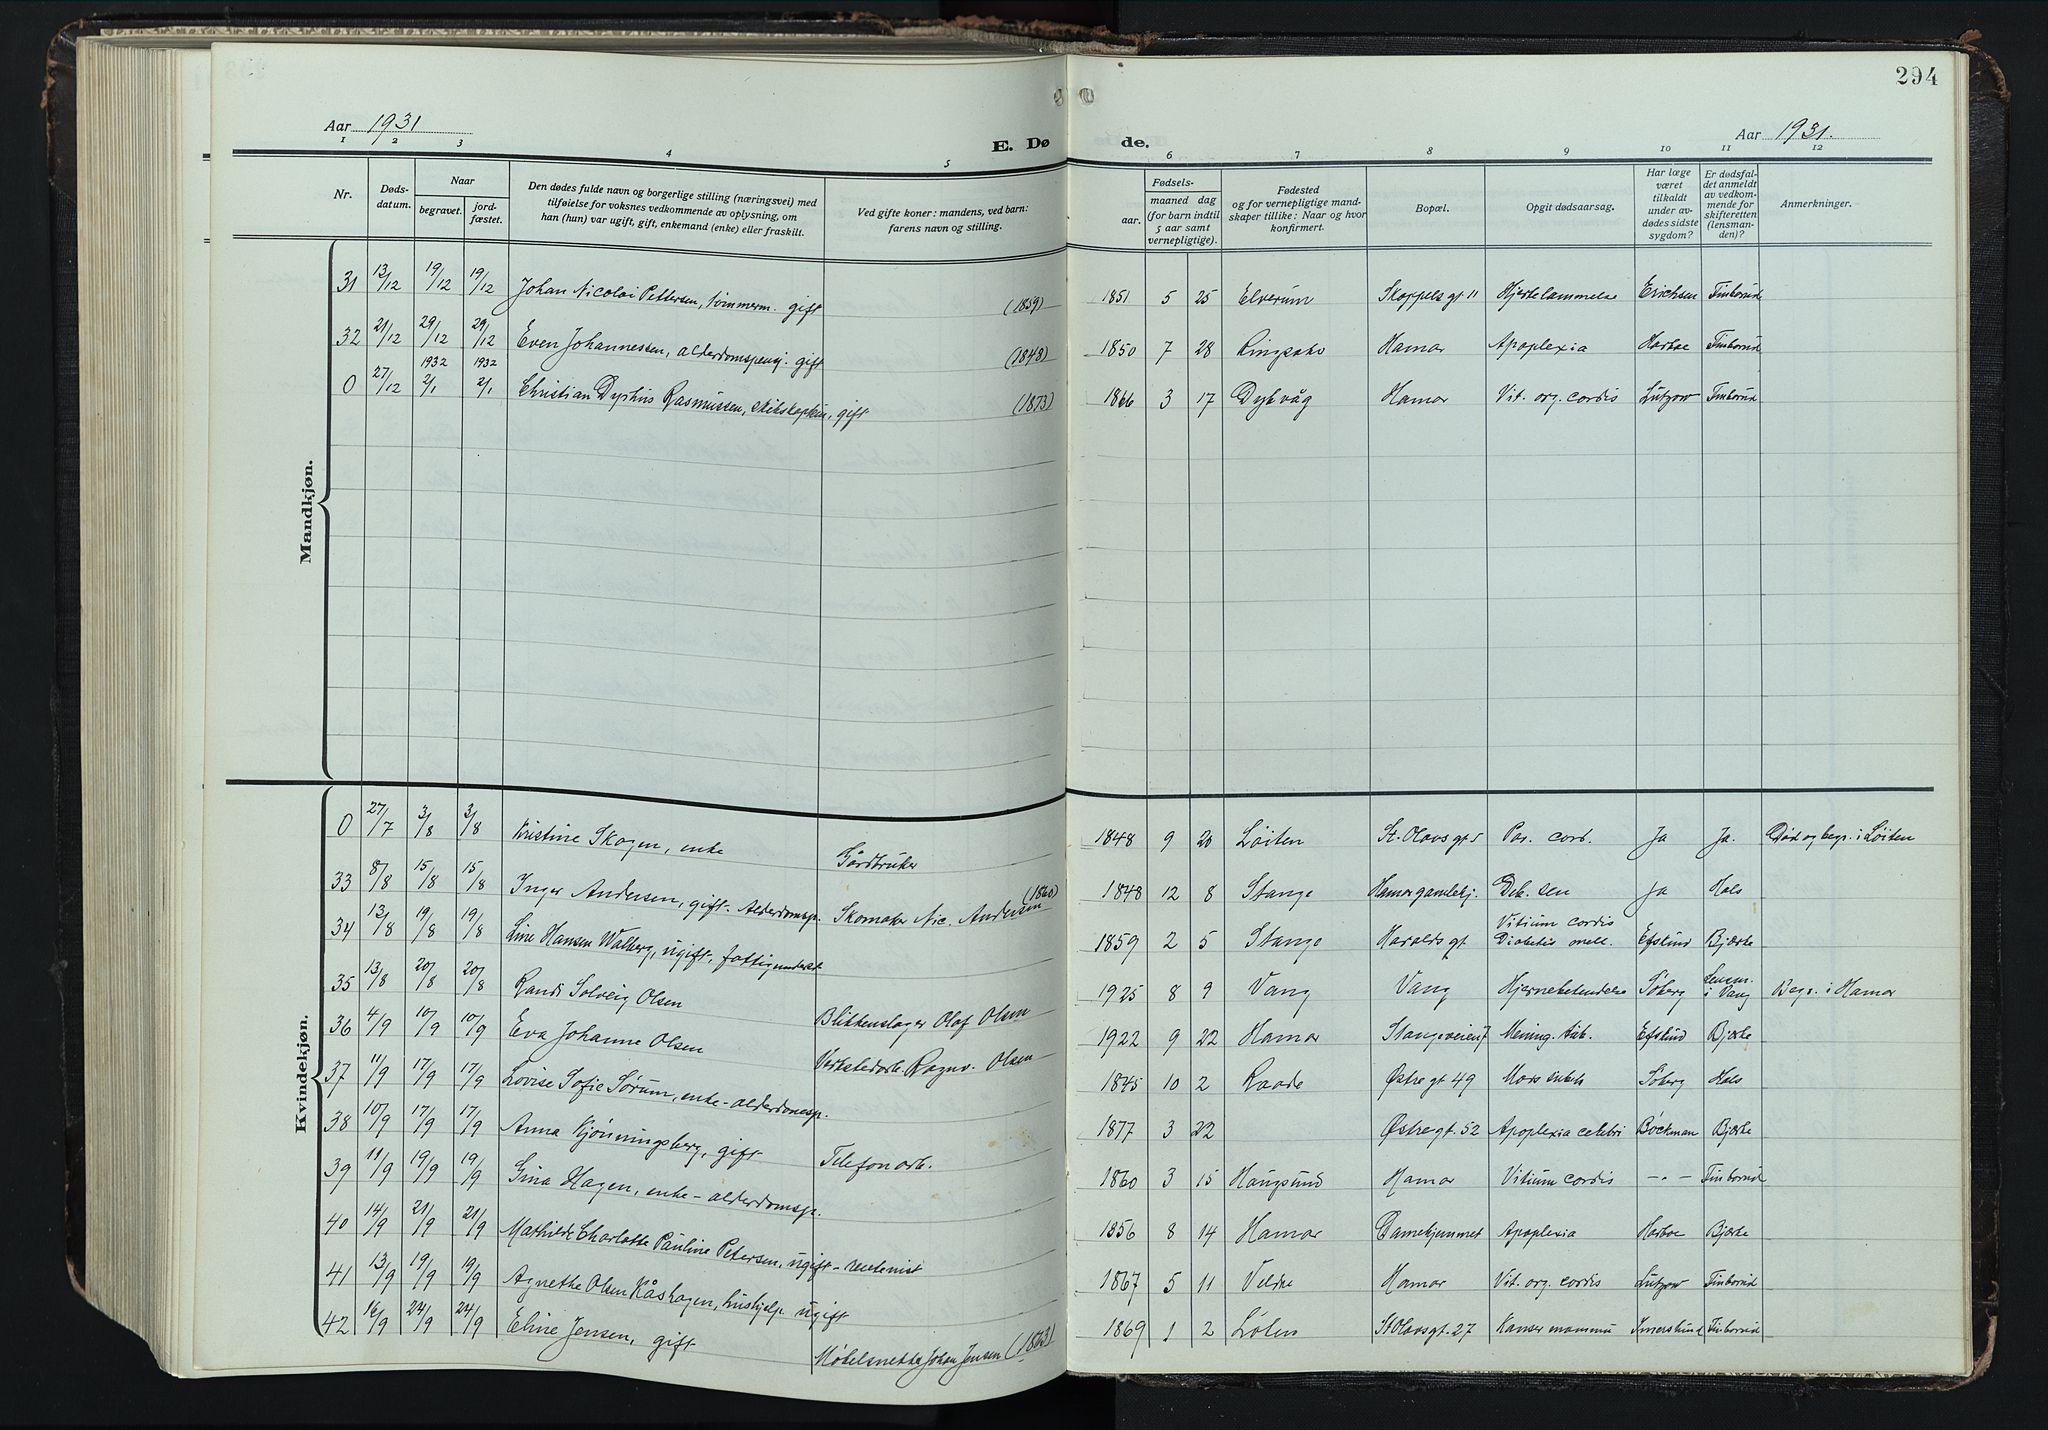 294
Aar 1931
E. Dø
de.
Aar 1931.
1 2 3 4 5 6 7 8 9 10 11 12
Nr.
Døds-
datum.
Naar
begravet.
jord-
fæstet.
Den dødes fulde navn og borgerlige stilling (næringsvei) med
tilføielse for voksnes vedkommende av oplysning, om
han (hun) var ugift, gift, enkemand (enke) eller fraskilt.
Ved gifte koner: mandens, ved barn:
farens navn og stilling.
Fødsels-
aar.
maaned dag
(for barn indtil
5 aar samt
vernepligtige).
Fødested
og for vernepligtige mand-
skaper tillike: Naar og hvor
konfirmert.
Bopæl.
Opgit dødsaarsag.
Har læge
været
tilkaldt
under av-
dødes sidste
sygdom?
Er dødsfal-
det anmeldt
av vedkom-
mende for
skifteretten
(lensman-
den)?
Anmerkninger.
Mandkjøn.
31 13/12 19/12 19/12 Johan Nicolai Pettersen, tømmerm. gift (1859) 1851 5 25 Elverum Skappelsgt 11 Hjertelammelse Erichsen Finborud
32 21/12 29/12 29/12 Even Johannessen, alderdomspensj. gift (1848) 1850 7 28 Ringsaker Hamar Apoplexia Harboe Finborud
1932 1932
0 27/12 2/1 2/1 Christian Dyphus Rasmussen, skibskaptein, gift (1873) 1866 3 17 Dybvåg Hamar Vit. org. cordis Lutzow Finborud
Kvindekjøn.
0 27/7 3/8 3/8 Kristine Skogen, enke Gårdbruker 1848 9 20 Løiten St. Olavsgt 5 Par. cord. Ja Ja. Død og begr. i Løiten
33 8/8 15/8 15/8 Inger Andersen, gift. Alderdomsp. Skomaker Nic. Andersen (1860) 1848 12 8 Stange Hamar gamlehj. Deb. sen Ja Hals
34 13/8 19/8 19/8 Line Hansen Walberg, ugift, fattigunderst 1859 2 5 Stange Haraldsgt. Vitium cordis
Diabetes mell. Efskind Bjerke
35 13/8 20/8 20/8 Randi Solveig Olsen Blikkenslager Olaf Olsen 1925 8 9 Vang Vang Hjernebetendelse Søberg Lensm.
i Vang Begr. i Hamar
36 4/9 10/9 10/9 Eva Johanne Olsen Verkstedarb. Ragnv. Olsen 1922 9 22 Hamar Stangeveien 7 Mening. tub. Efskind Bjerke
37 11/9 17/9 17/9 Lovise Sofie Sørum, enke - alderdomsp. 1845 10 2 Raade Østregt 49 Mors subit. Søberg Hals
38 10/9 17/9 17/9 Anna Kjønningsberg, gift Telefonarb. 1877 3 22 Østregt. 52 Apoplexia celebri Bøckman Bjerke
39 11/9 19/9 19/9 Gina Hagen, enke - alderdomsp. 1860 3 15 Haugsund Hamar Vitium cordis -"- Finborud
40 14/9 21/9 21/9 Mathilde Charlotte Pauline Petersen, ugift - rentenist 1856 8 14 Hamar Damehjemmet Apoplexia Harboe Bjerke
41 13/9 19/9 19/9 Agnethe Olsen Kåshagen, hushjelp ugift 1867 5 11 Veldre Hamar Vit. org. cordis Lutzow Finborud
42 16/9 24/9 24/9 Eline Jensen, gift Møbelsnekker Johan Jensen (1863) 1869 1 2 Løten St Olavsgt. 27 Kanser mammae Imerslund Finborud